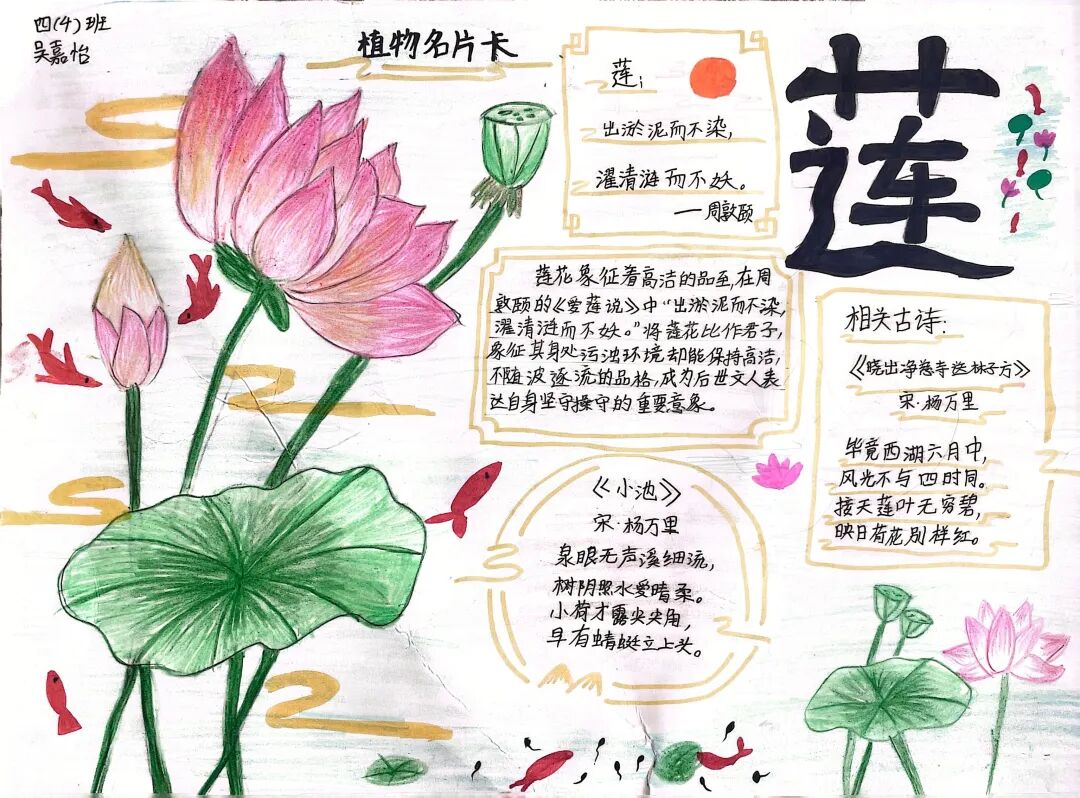 四(4)班
吴嘉怡
植物名片卡
莲:
出淤泥而不染,
濯清涟而不妖。
—周敦颐
莲
莲花象征着高洁的品至,在周
敦颐的《爱莲说》中“出淤泥而不染,
濯清涟而不妖。”将莲花比作君子,
象征其身处污浊环境却能保持高洁,
不随波逐流的品格,成为后世文人表
达自身坚守操守的重要意象。
相关古诗:
《晓出净慈寺送林子方》
宋·杨万里
毕竟西湖六月中,
风光不与四时同。
接天莲叶无穷碧,
映日荷花别样红。
《小池》
宋·杨万里
泉眼无声溪细流,
树阴照水爱晴柔。
小荷才露尖尖角,
早有蜻蜓立上头。